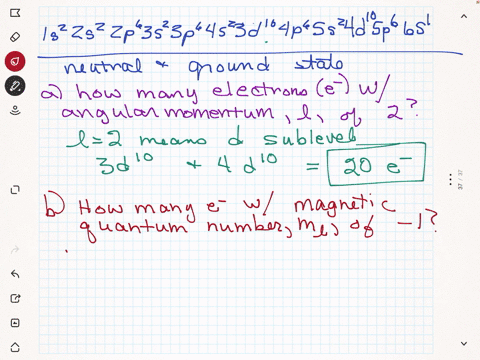 1s² 2s² 2p⁶ 3s² 3p⁶ 4s² 3d¹⁰ 4p⁶ 5s² 4d¹⁰ 5p⁶ 6s¹
neutral & ground state
a) how many electrons (e⁻) w/
angular momentum, l, of 2?
l=2 means d sublevel
3d¹⁰ + 4d¹⁰ = 20 e⁻
b) How many e⁻ w/ magnetic
quantum number, mₗ, of -1?
37 / 37